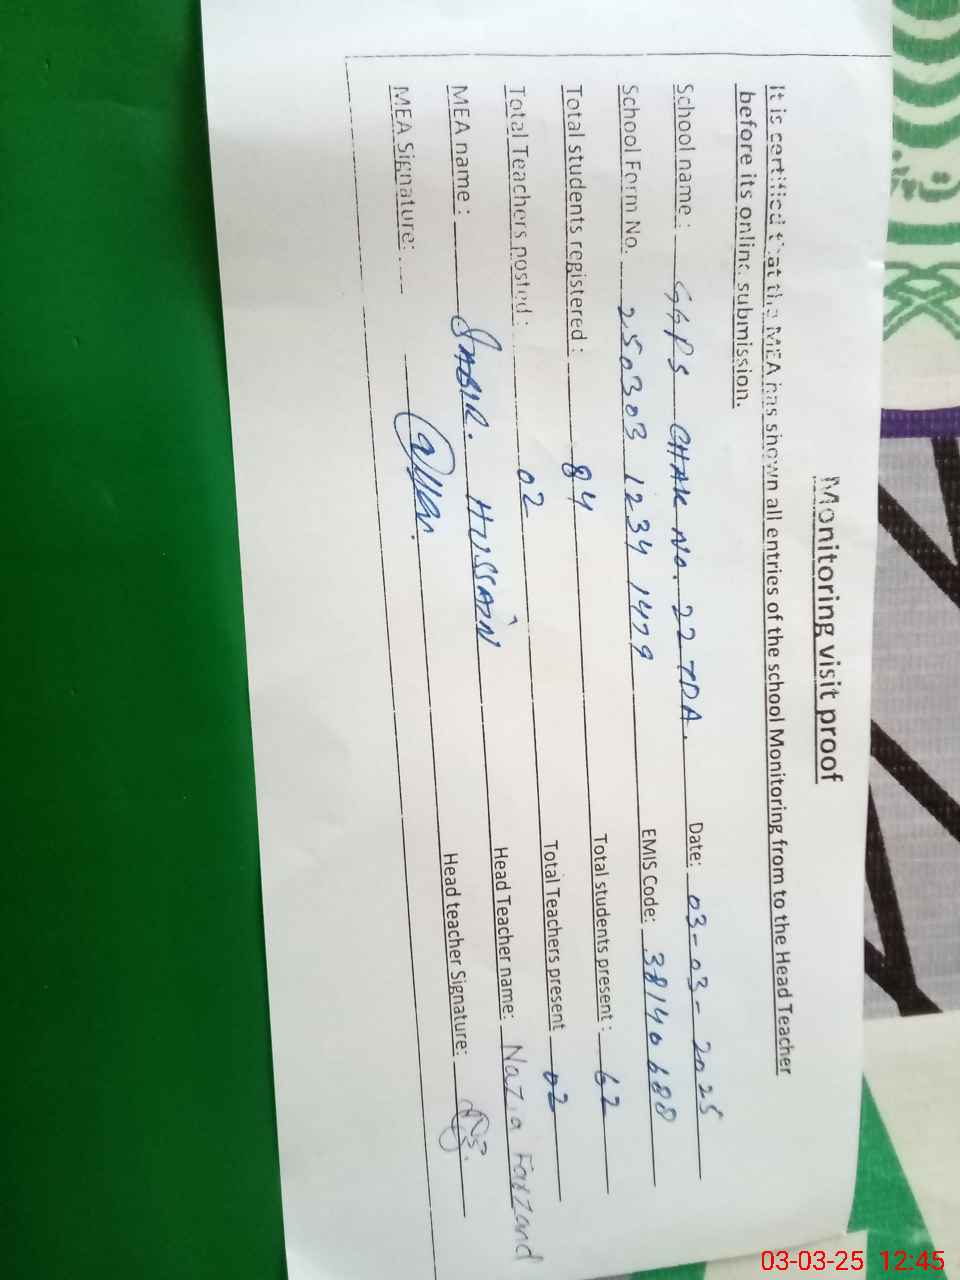 Monitoring visit proof
It is certified that the MEA has shown all entries of the school Monitoring from to the Head Teacher
before its online submission.
School name: GGPS CHAK No. 22 TDA. Date: 03-03-2025
School Form No. 250303 1234 1479 EMIS Code: 38140688
Total students registered: 84 Total students present: 62
Total Teachers posted: 02 Total Teachers present 02
MEA name: SABIR. HUSSAIN Head Teacher name: Nazia Farzand
MEA Signature: Head teacher Signature:
03-03-25 12:45